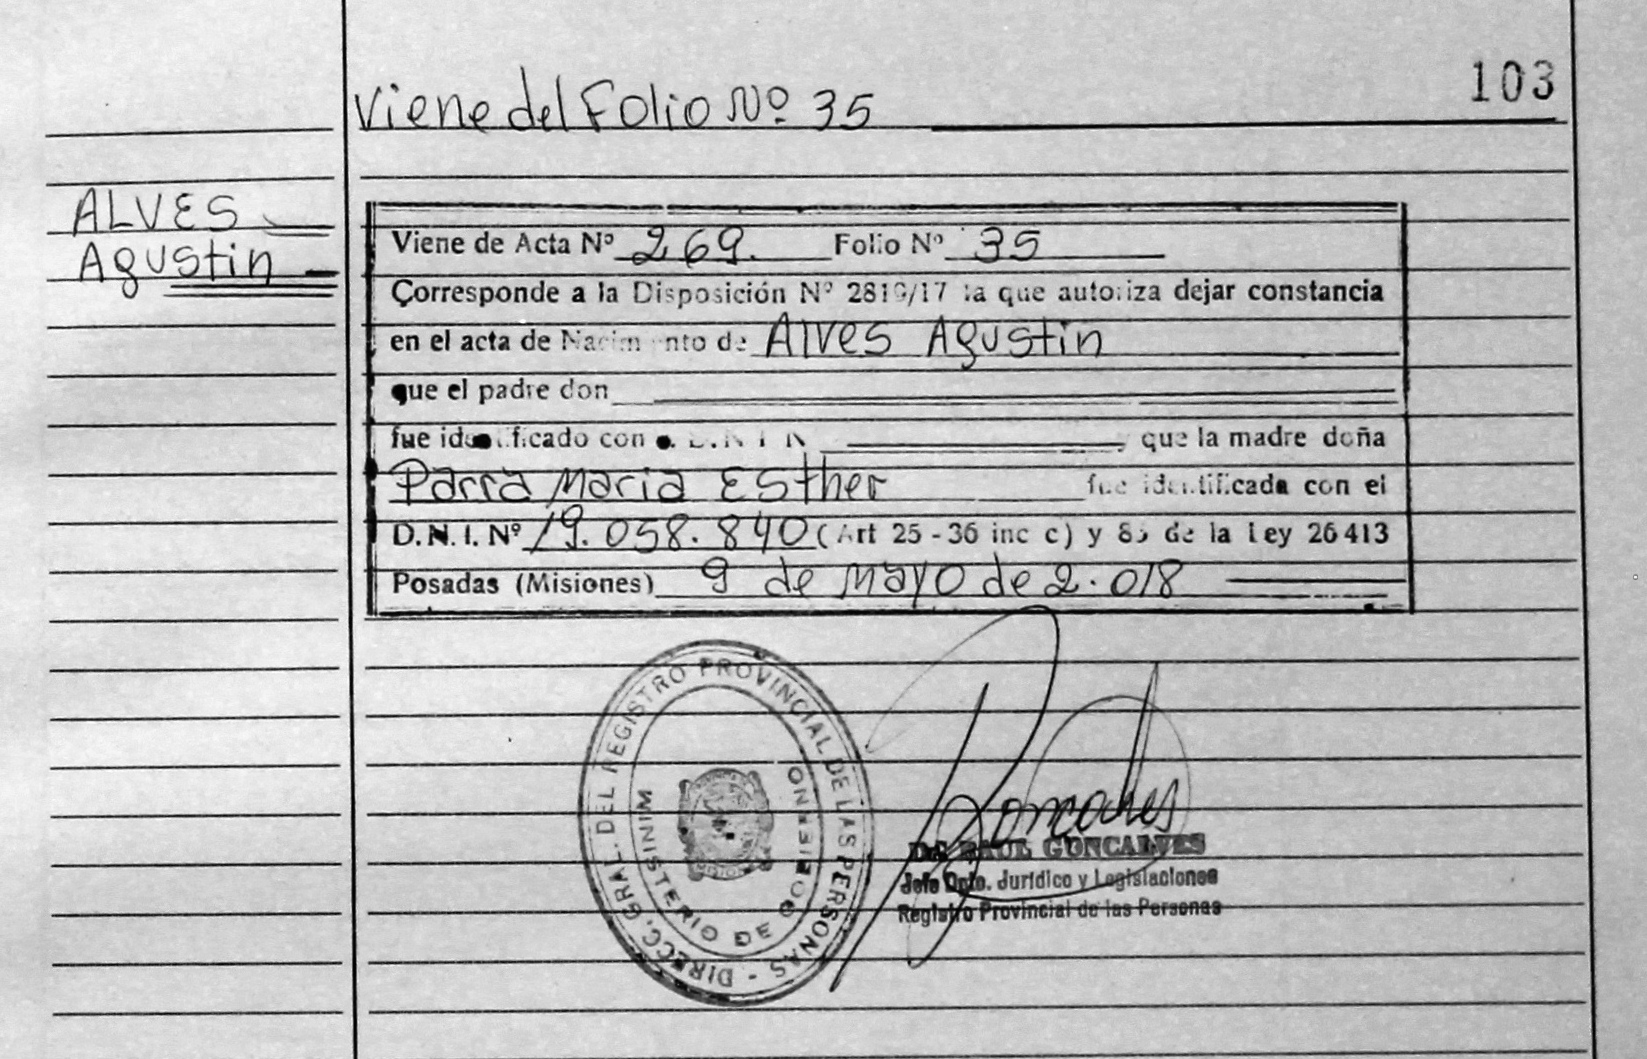 103
Viene del Folio Nº 35
ALVES
Agustin
Viene de Acta Nº 269. Folio Nº 35
Corresponde a la Disposición Nº 2819/17 la que autoriza dejar constancia
en el acta de Nacimiento de Alves Agustin
que el padre don
fue identificado con D.N.I N y que la madre doña
Parra Maria Esther fue identificada con el
D.N.I. Nº 19.058.840 (Art 25 - 36 inc c) y 85 de la Ley 26413
Posadas (Misiones) 9 de Mayo de 2.018
DIRECC. GRAL. DEL REGISTRO PROVINCIAL DE LAS PERSONAS -
MINISTERIO DE GOBIERNO
Goncalves
Dr. RAUL GONCALVES
Jefe Dpto. Jurídico y Legislaciones
Registro Provincial de las Personas